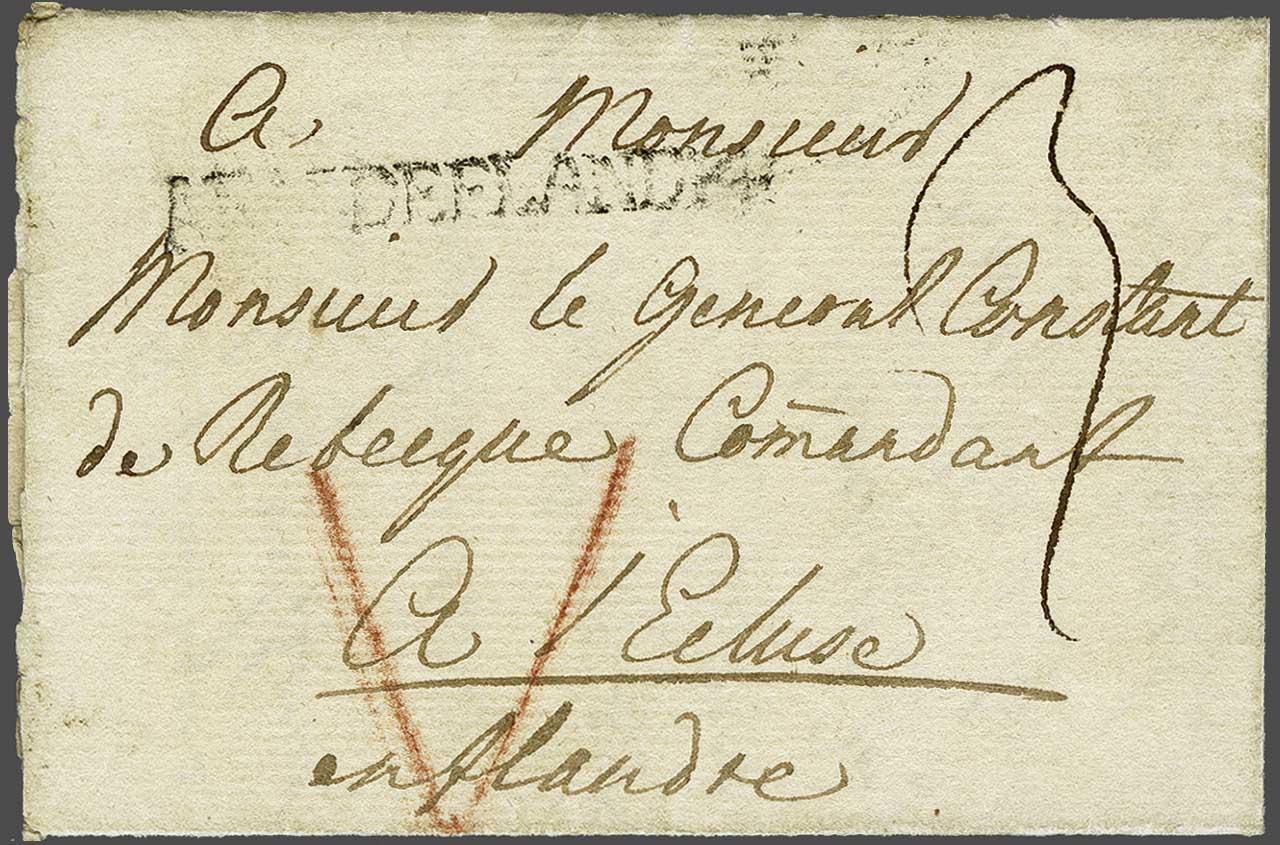 A Monsieur
DEFLANDRE
Monsieur le General Constant
de Rebecque Com̄andant
A l'Ecluse
en flandre